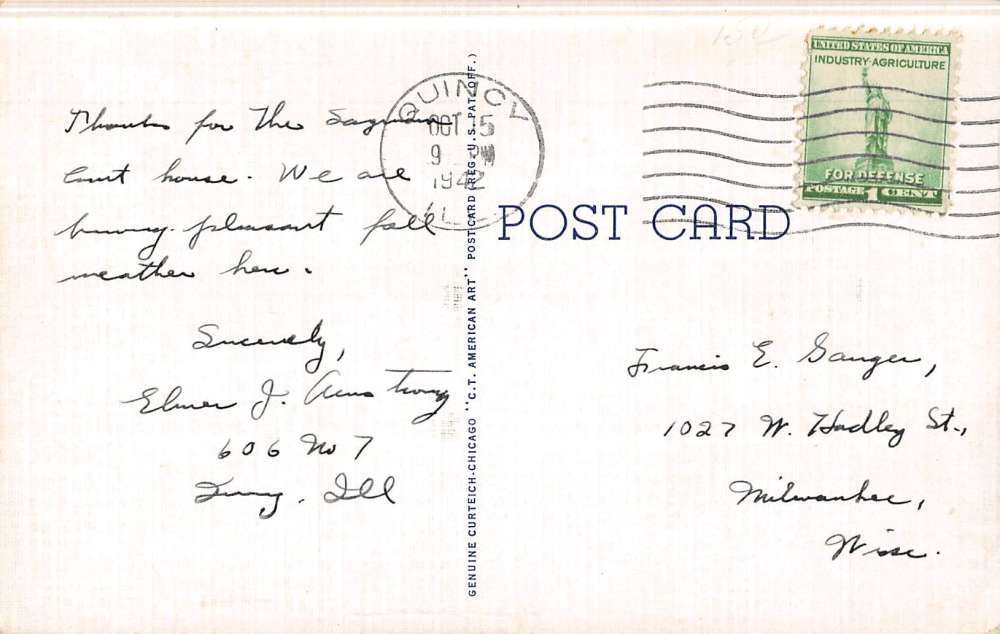 Thanks for the Saginaw
Court house. We are
having pleasant fall
weather here.
Sincerely,
Elmer J. Armstrong
606 No 7
Quincy, Ill
QUINCY
OCT 15
9
1942
ILL
GENUINE CURTEICH-CHICAGO "C.T. AMERICAN ART" POST CARD (REG. U.S. PAT. OFF.)
POST CARD
UNITED STATES OF AMERICA
INDUSTRY AGRICULTURE
FOR DEFENSE
POSTAGE 1 CENT
Francis E. Sanger,
1027 W. Hadley St.,
Milwaukee,
Wisc.